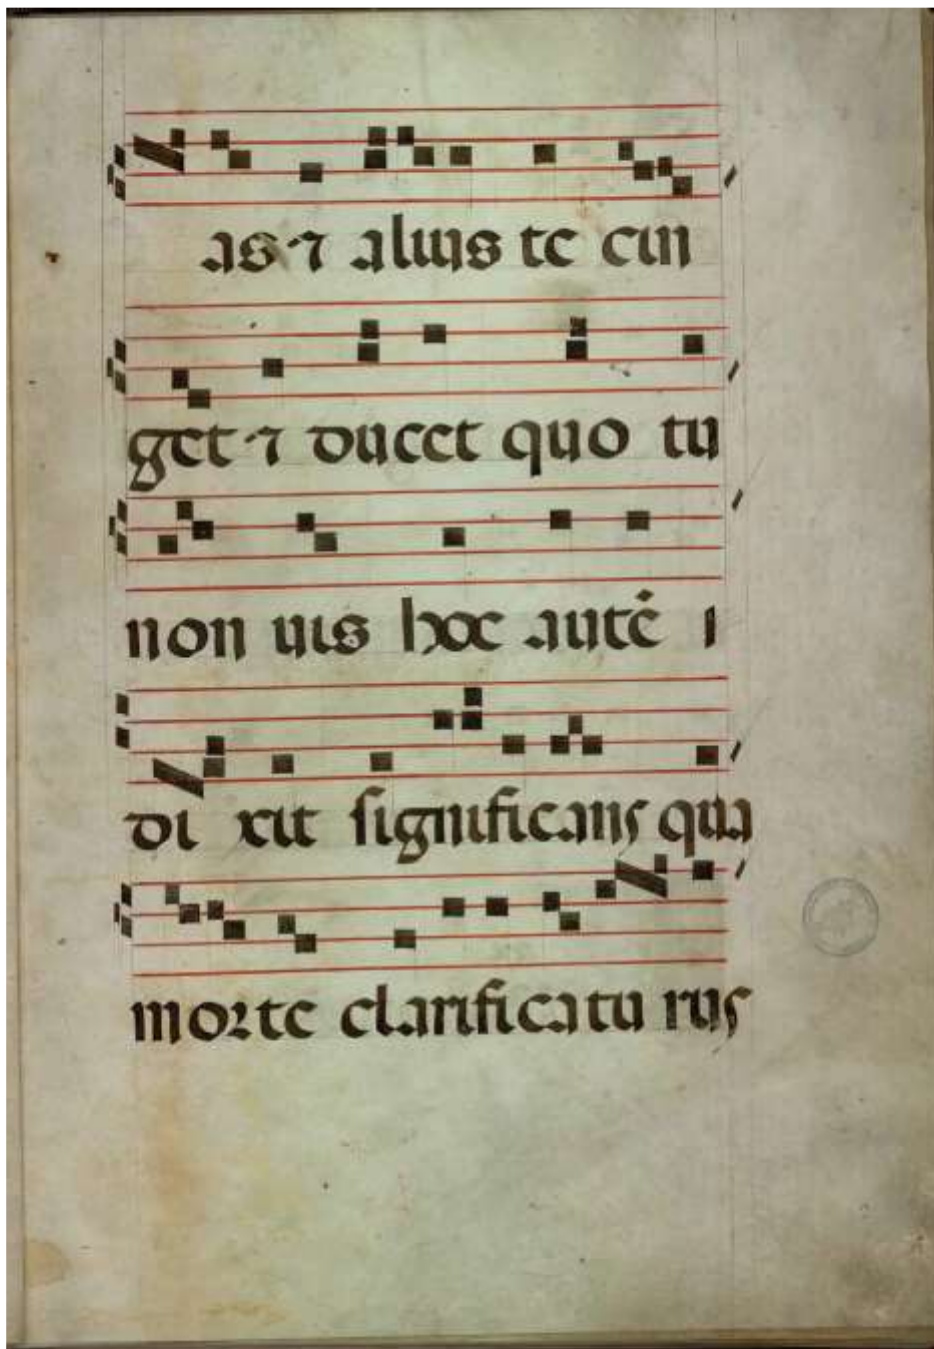 as ⁊ alius te cin
get ⁊ ducet quo tu
non uis hoc autē i
di xit significans qua
morte clarificatu rus